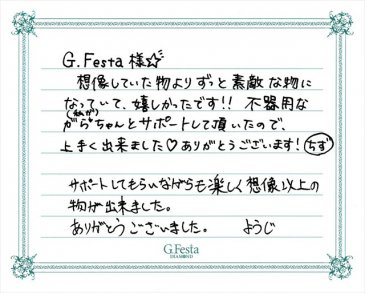 G.Festa 様☆
想像していた物よりずっと素敵な物に
なっていて、嬉しかったです!! 不器用な
(私が)
がらちゃんとサポートして頂いたので、
上手く出来ました♡ ありがとうございます! ちず
サポートしてもらいながらも楽しく想像以上の
物が出来ました。
ありがとうございました。 ようじ
G.Festa
DIAMOND